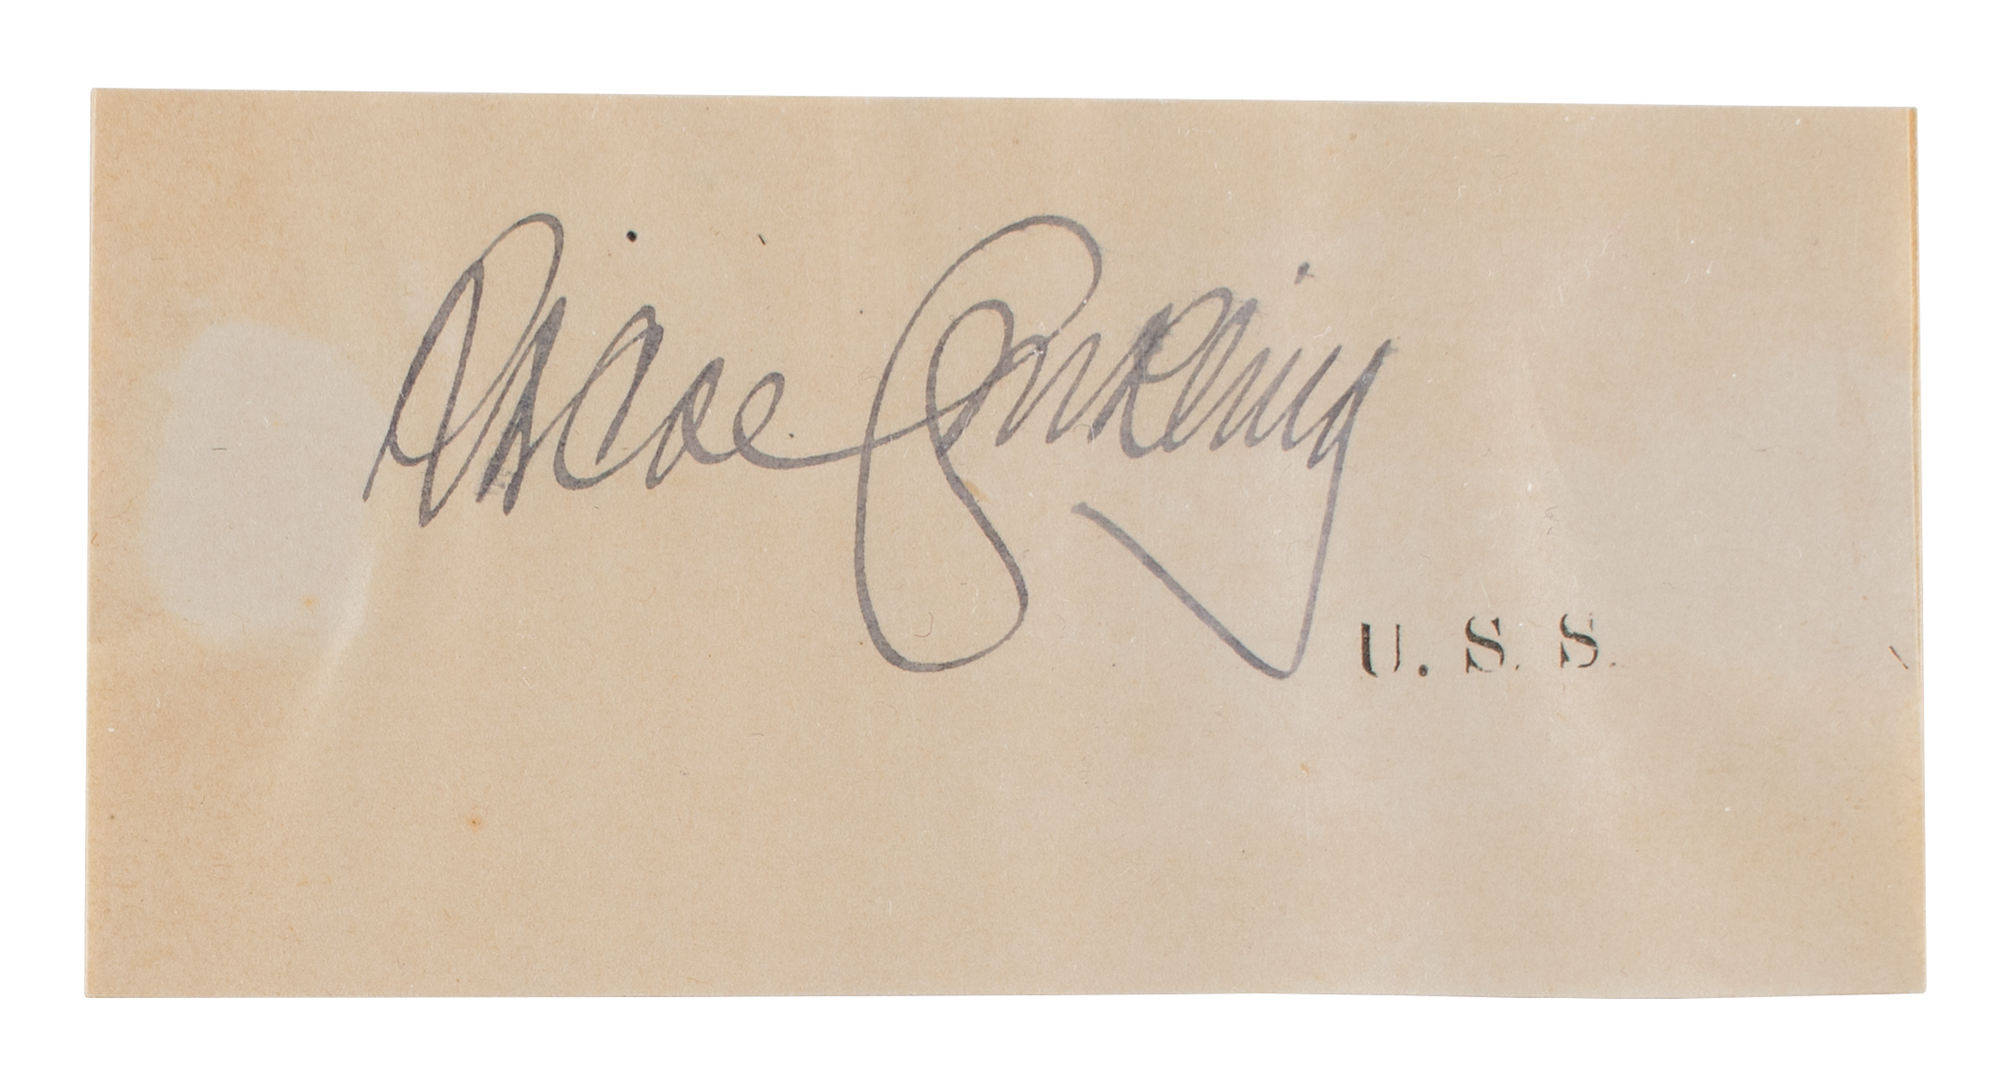 Roscoe Conkling
U. S. S.